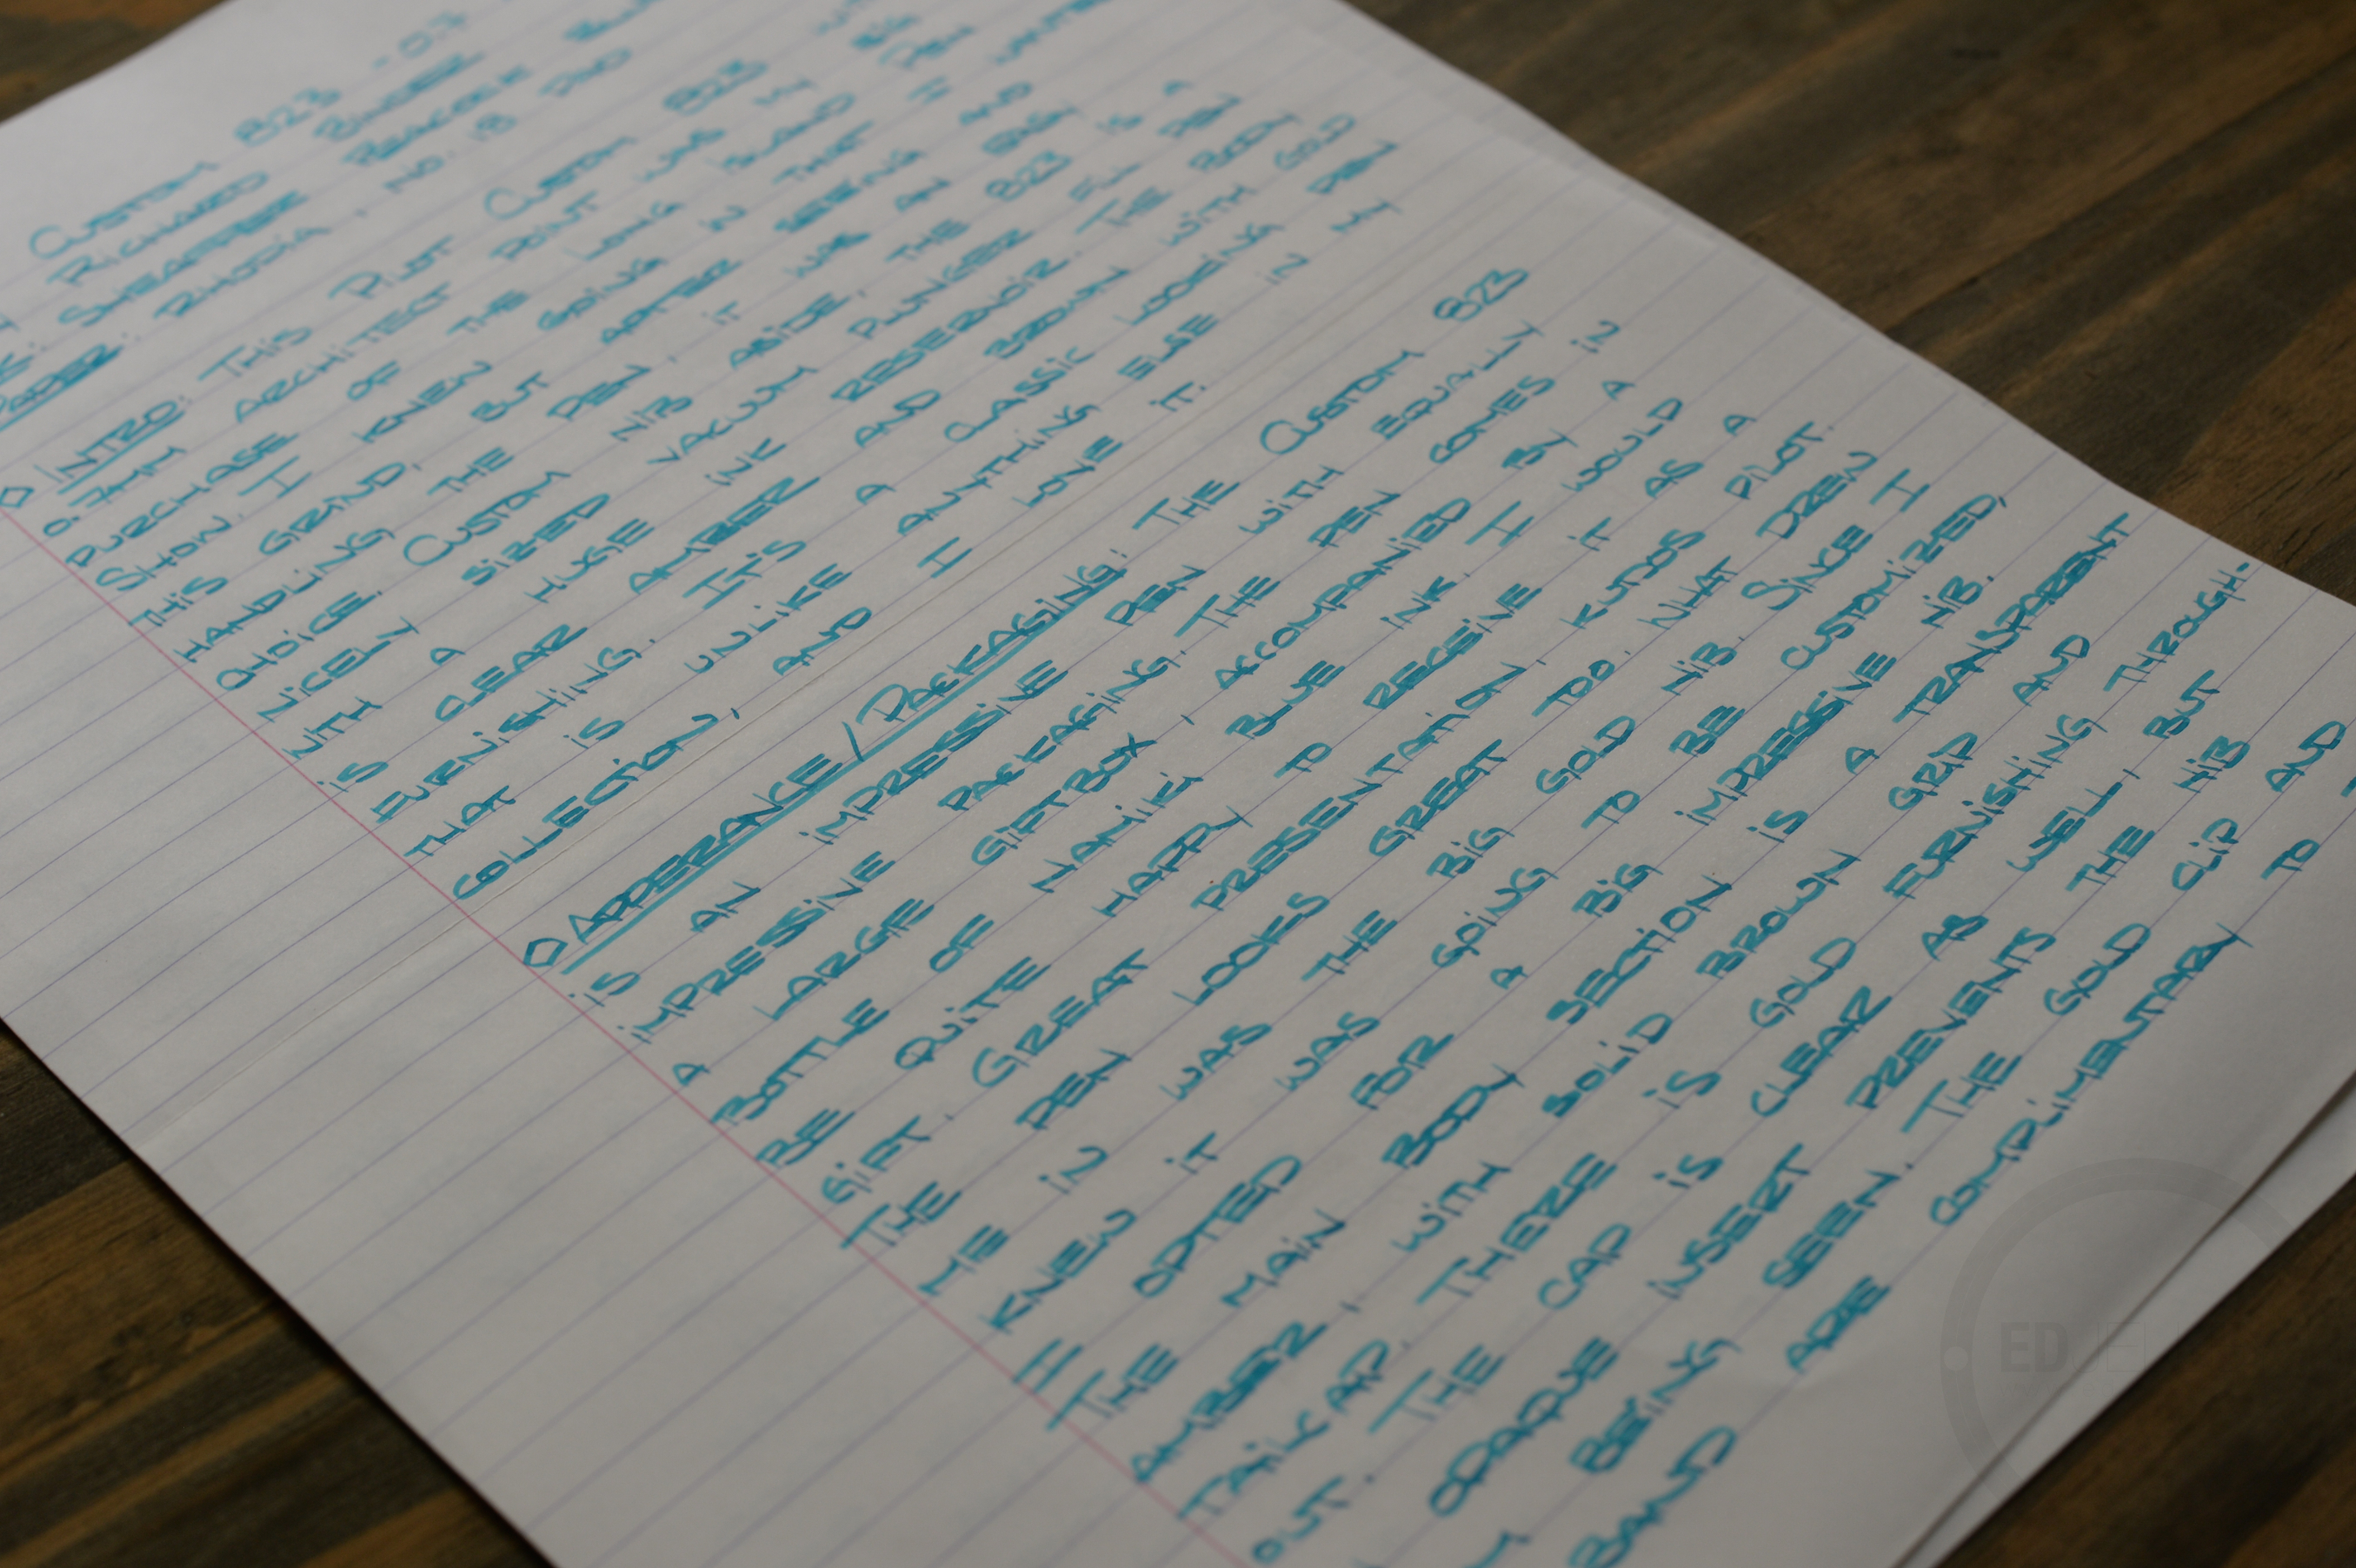 Custom 823 -
Richard Binder
Sheaffer Peacock Blue
Paper: Rhodia, No. 18 Pad
◇ INTRO: This Pilot Custom 823
Architect Point was my
purchase of the Long Island
Show. I knew going in that I
this grind, but after seeing and
handling the pen, it was an easy
choice. Custom nib aside, the 823 is a
nicely sized vacuum plunger fill pen
with a huge ink reservoir. The body
is clear amber and brown with gold
furnishing. It's a classic looking pen
that is unlike anything else in my
collection, and I love it.
◇ APPERANCE / PACKAGING: The Custom 823
is an impressive pen with equally
impressive packaging. The pen comes in
a large giftbox, accompanied by a
bottle of Namiki Blue ink. I would
be quite happy to receive it as a
gift. Great presentation, kudos Pilot.
The pen looks great too. What drew
me in was the big gold nib. Since I
knew it was going to be customized,
I opted for a big impressive nib.
The main body section is a transparent
amber, with solid brown grip and
tailcap. There is gold furnishing through-
out. The cap is clear as well, but
opaque insert prevents the nib
being seen. The gold clip and
band are complimentary to